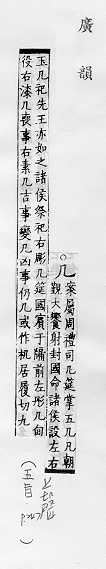 廣韻
○几
案屬周禮司几筵掌五几凡朝
覲大饗射封國命諸侯設左右
玉几祀先王亦如之諸侯祭祀右彫几筵國賓于牖前左彤几甸
役右漆几喪事右素几吉事變几凶事仍几或作机居履切九
(五旨